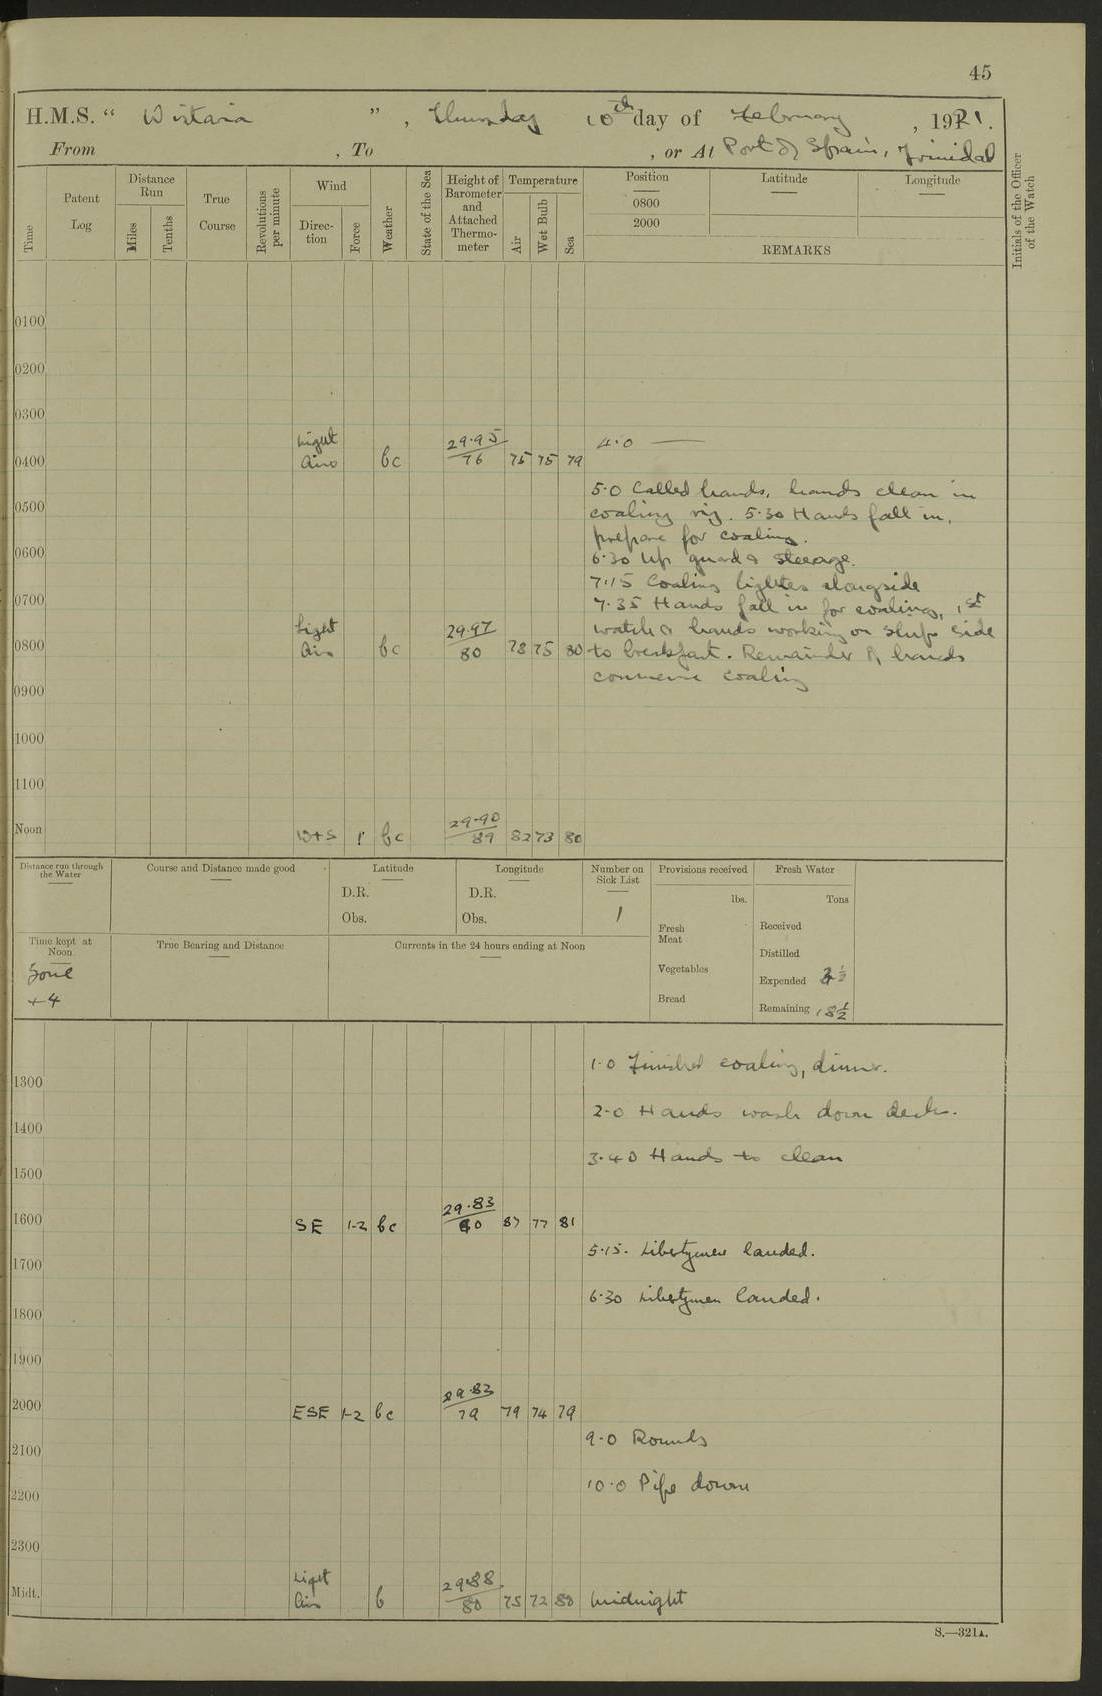 45
H.M.S. “ Wistaria ” , Thursday 10th day of February , 1921.
From , To , or At Port of Spain, Trinidad
Time
Patent Log
Distance Run
Miles
Tenths
True Course
Revolutions per minute
Wind
Direction
Force
Weather
State of the Sea
Height of Barometer and Attached Thermometer
Temperature
Air
Wet Bulb
Sea
Position
0800
2000
Latitude
Longitude
REMARKS
Initials of the Officer of the Watch
0100
0200
0300
Light 29.95 4.0 —
0400 Airs bc 76 75 75 79
5.0 Called hands, hands clean in
0500 coaling rig. 5.30 Hands fall in,
prepare for coaling.
0600 6.30 Up guard & steerage.
7.15 Coaling lighter alongside
0700 7.35 Hands fall in for coaling, 1st
Light 29.97 watch & hands working on ships side
0800 Air bc 80 78 75 80 to breakfast. Remainder of hands
commence coaling
0900
1000
1100
29.90
Noon W+S 1 bc 89 82 73 80
Distance run through the Water
Course and Distance made good
Latitude
D.R.
Obs.
Longitude
D.R.
Obs.
Number on Sick List
1
Provisions received
lbs.
Fresh Meat
Vegetables
Bread
Fresh Water
Tons
Received
Distilled
Expended 3 ½
Remaining 18 ½
Time kept at Noon
Zone
+4
True Bearing and Distance
Currents in the 24 hours ending at Noon
1.0 Finished coaling, dinner.
1300
2.0 Hands wash down decks.
1400
3.40 Hands to clean
1500
29.83
1600 SE 1-2 bc 80 87 77 81
5.15. Libertymen landed.
1700
6.30 Libertymen landed.
1800
1900
29.83
2000 ESE 1-2 bc 79 79 74 79
9.0 Rounds
2100
10.0 Pipe down
2200
2300
Light 29.88
Midt. Air b 80 75 72 80 Midnight
S.—321A.